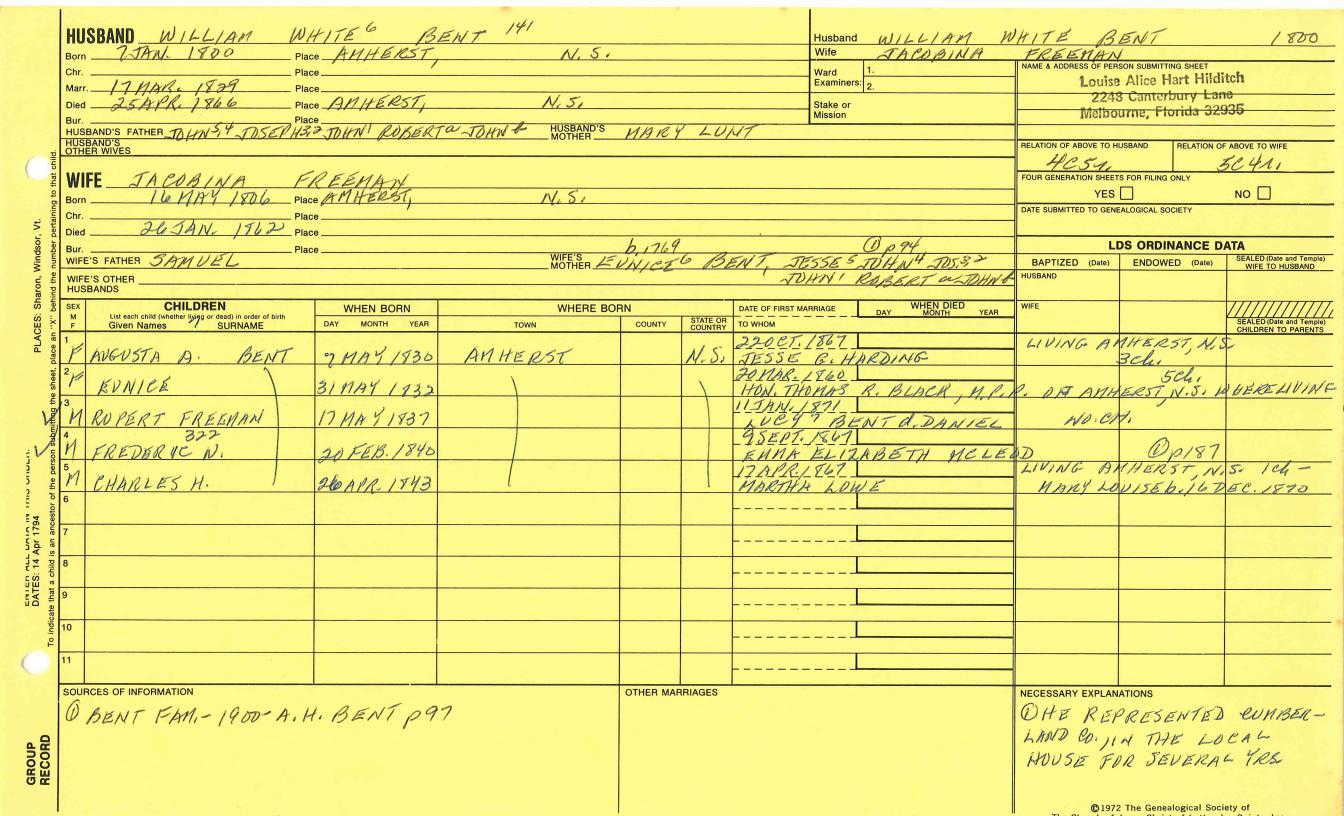 HUSBAND WILLIAM WHITE 6 BENT 141
Born 7 JAN. 1800 Place AMHERST, N.S.
Chr. Place
Marr. 17 MAR. 1829 Place
Died 25 APR. 1866 Place AMHERST, N.S.
Bur. Place
HUSBAND'S FATHER JOHN 5,4 JOSEPH 3,2 JOHN 1 ROBERT a JOHN b HUSBAND'S MOTHER MARY LUNT
HUSBAND'S OTHER WIVES
WIFE JACOBINA FREEMAN
Born 16 MAY 1806 Place AMHERST, N.S.
Chr. Place
Died 26 JAN. 1862 Place
Bur. Place b. 1769 ① p94
WIFE'S FATHER SAMUEL WIFE'S MOTHER EUNICE 6 BENT, JESSE 5 JOHN 4 JOS. 3,2
JOHN 1 ROBERT a JOHN b
WIFE'S OTHER HUSBANDS
Husband WILLIAM WHITE BENT 1800
Wife JACOBINA FREEMAN
Ward Examiners: 1.
2.
Stake or Mission
NAME & ADDRESS OF PERSON SUBMITTING SHEET
Louise Alice Hart Hilditch
2243 Canterbury Lane
Melbourne, Florida 32935
RELATION OF ABOVE TO HUSBAND RELATION OF ABOVE TO WIFE
4C5r. 5C4r.
FOUR GENERATION SHEETS FOR FILING ONLY
YES NO
DATE SUBMITTED TO GENEALOGICAL SOCIETY
LDS ORDINANCE DATA
BAPTIZED (Date) ENDOWED (Date) SEALED (Date and Temple) WIFE TO HUSBAND
HUSBAND
WIFE
SEALED (Date and Temple) CHILDREN TO PARENTS
SEX M F CHILDREN WHEN BORN WHERE BORN DATE OF FIRST MARRIAGE WHEN DIED
List each child (whether living or dead) in order of birth
Given Names 7 SURNAME DAY MONTH YEAR TOWN COUNTY STATE OR COUNTRY TO WHOM DAY MONTH YEAR
1 22 OCT. 1867 LIVING AMHERST, N.S.
F AUGUSTA A. BENT 7 MAY 1830 AMHERST N.S. JESSE B. HARDING 3 ch.
2 20 MAR. 1860 5 ch.
F EUNICE 31 MAY 1832 HON. THOMAS R. BLACK, M.P.P. OF AMHERST, N.S. WHERE LIVING
3 11 JAN. 1871
M RUPERT FREEMAN 17 MAY 1837 LUCY 7 BENT d. DANIEL NO. CH.
4 322 9 SEPT. 1867
M FREDERIC N. 20 FEB. 1840 EMMA ELIZABETH MCLEOD ① p187
5 17 APR. 1867 LIVING AMHERST, N.S. 1 ch -
M CHARLES H. 26 APR. 1843 MARTHA LOWE MARY LOUISE b. 16 DEC. 1870
6
7
8
9
10
11
SOURCES OF INFORMATION
① BENT FAM. - 1900 - A.H. BENT p97
OTHER MARRIAGES
NECESSARY EXPLANATIONS
① HE REPRESENTED CUMBER-
LAND CO., IN THE LOCAL
HOUSE FOR SEVERAL YRS
©1972 The Genealogical Society of
PLACES: Sharon, Windsor, Vt.
DATES: 14 Apr 1794
To indicate that a child is an ancestor of the person submitting the sheet, place an "X" behind the number pertaining to that child.
GROUP
RECORD